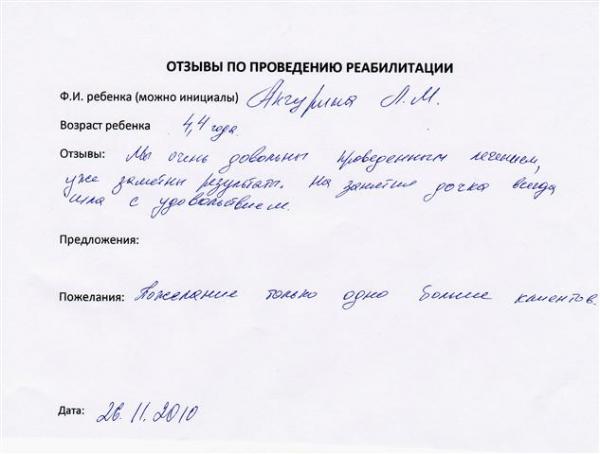 ОТЗЫВЫ ПО ПРОВЕДЕНИЮ РЕАБИЛИТАЦИИ
Ф.И. ребенка (можно инициалы) Ангурина Л.М.
Возраст ребенка 4,4 года.
Отзывы: Мы очень довольны проведенным лечением,
уже заметны результаты. На занятие дочка всегда
шла с удовольствием.
Предложения:
Пожелания: Пожелание только одно больше клиентов.
Дата: 26.11.2010